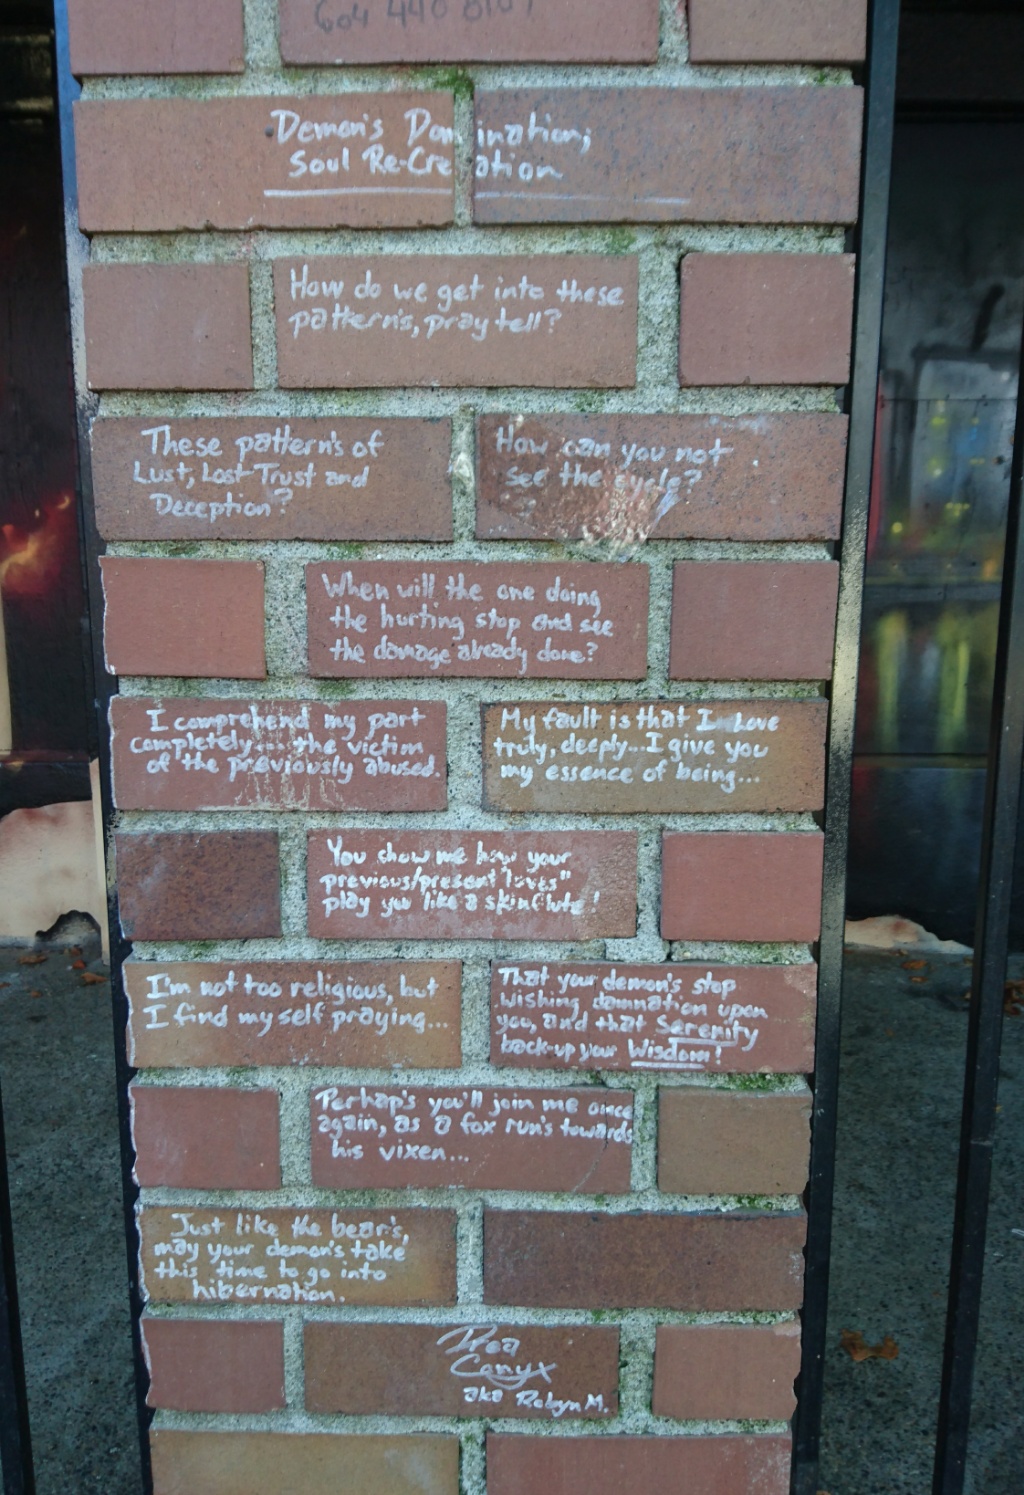 604 440 8107
Demon's Domination;
Soul Re-Creation
How do we get into these
pattern's, pray tell?
These pattern's of
Lust, Lost Trust and
Deception?
How can you not
see the cycle?
When will the one doing
the hurting stop and see
the damage already done?
I comprehend my part
completely... the victim
of the previously abused.
My fault is that I Love
truly, deeply...I give you
my essence of being...
You show me how your
previous/present "loves"
play you like a skinflute!
I'm not too religious, but
I find my self praying...
That your demon's stop
wishing damnation upon
you, and that Serenity
back-up your Wisdom!
Perhap's you'll join me once
again, as a fox run's towards
his vixen...
Just like the bear's,
may your demon's take
this time to go into
hibernation.
Drea
Conyx
aka Robyn M.